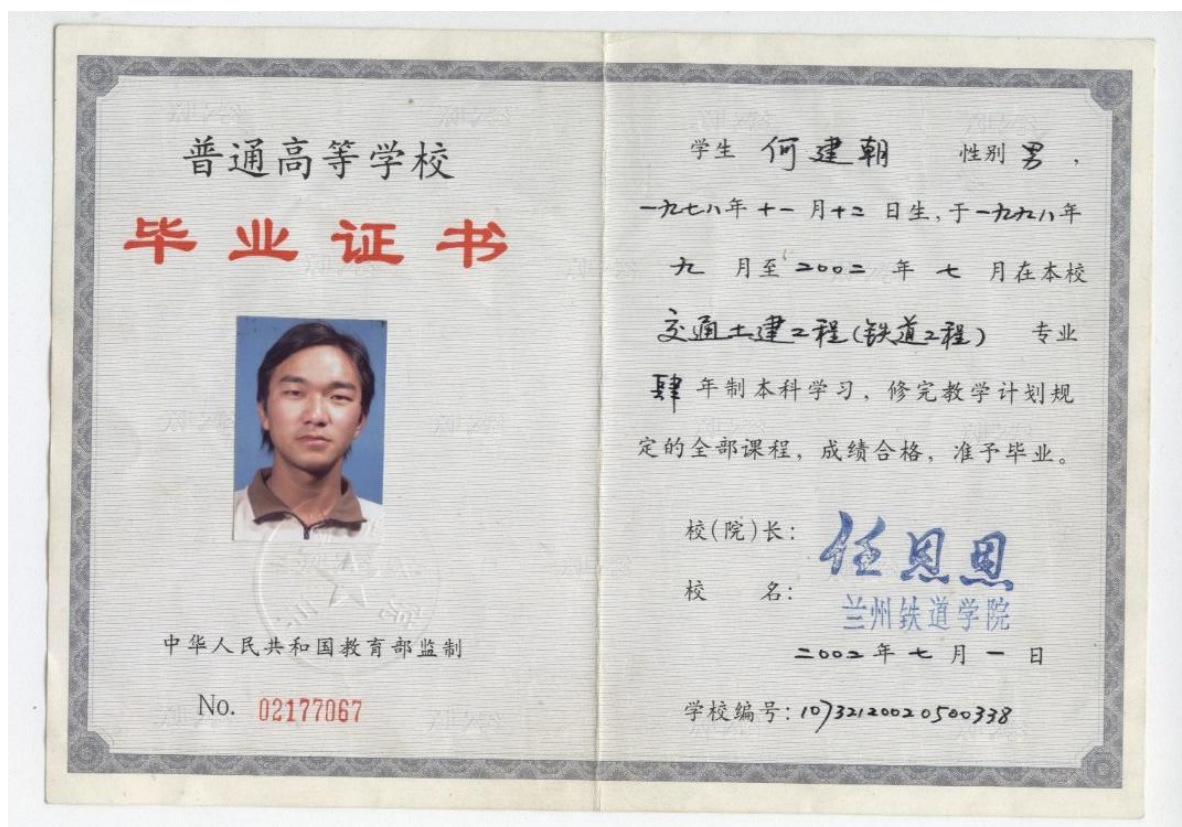 普通高等学校
毕业证书
中华人民共和国教育部监制
No. 02177067
学生 何建朝 性别 男，
一九七八年十一月十二日生，于一九九八年
九月至二〇〇二年七月在本校
交通土建工程(铁道工程) 专业
肆年制本科学习，修完教学计划规
定的全部课程，成绩合格，准予毕业。
校(院)长： 任恩恩
校 名： 兰州铁道学院
二〇〇二年七月一日
学校编号：10732120020500338